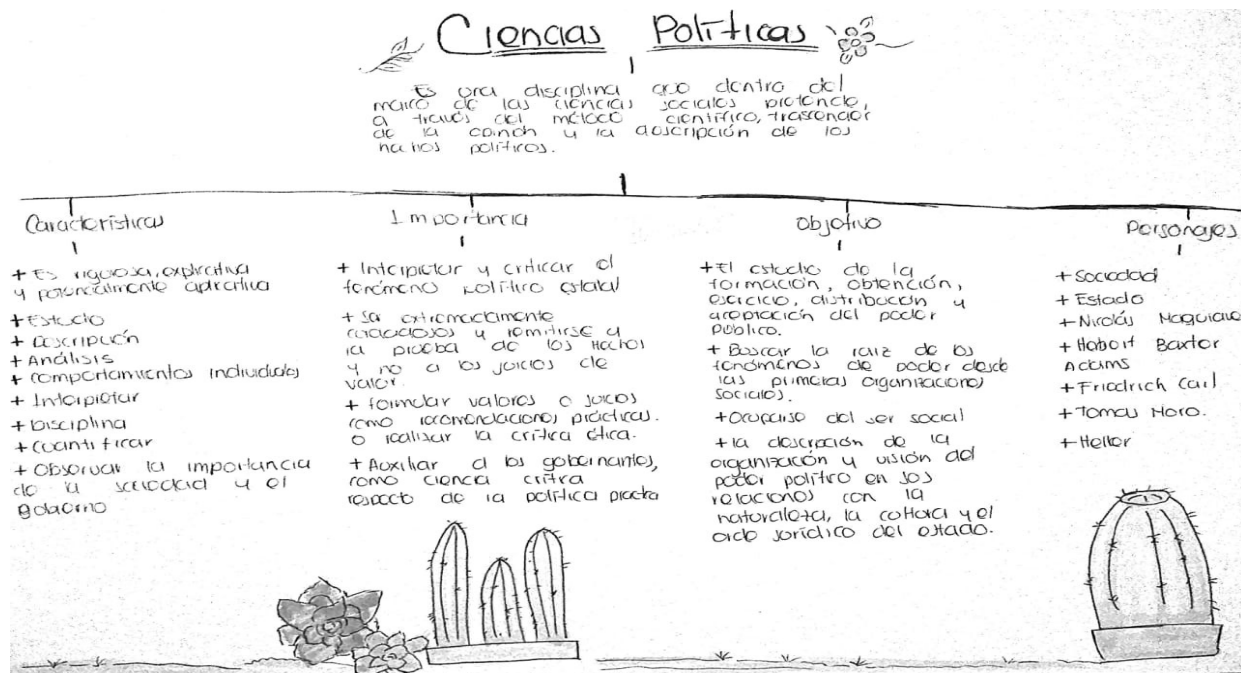 Ciencias Políticas
Es una disciplina que dentro del
marco de las ciencias sociales pretende,
a través del método científico, trascender
de la y la descripción de los
hechos políticos.
Características
+ Es rigurosa, explicativa
y potencialmente aplicativa
+ Estudio
+ Descripción
+ Análisis
+ Comportamientos individuales
+ Interpretar
+ Disciplina
+ Cuantificar
+ Observar la importancia
de la sociedad y el
gobierno
Importancia
+ Interpretar y criticar el
fenómeno político estatal
+ Ser extremadamente
cuidadosos y remitirse a
la prueba de los Hechos
y no a los juicios de
valor.
+ formular valores o juicos
como recomendaciones prácticas.
o realizar la crítica ética.
+ Auxiliar a los gobernantes,
como ciencia crítica
respecto de la política
Objetivo
+ El estudio de la
formación, obtención,
ejercicio, distribución y
aceptación del poder
público.
+ Buscar la raiz de los
fenómenos de poder desde
las primeras organizaciones
sociales.
+ Ocuparse del ser social
+ la descripción de la
organización y visión del
poder político en sus
relaciones con la
naturaleza, la cultura y el
jurídico del estado.
Personajes
+ Sociedad
+ Estado
+ Nicolás
+ Hebert Baxter
Adams
+ Friedrich Carl
+ Tomas Moro.
+ Heller